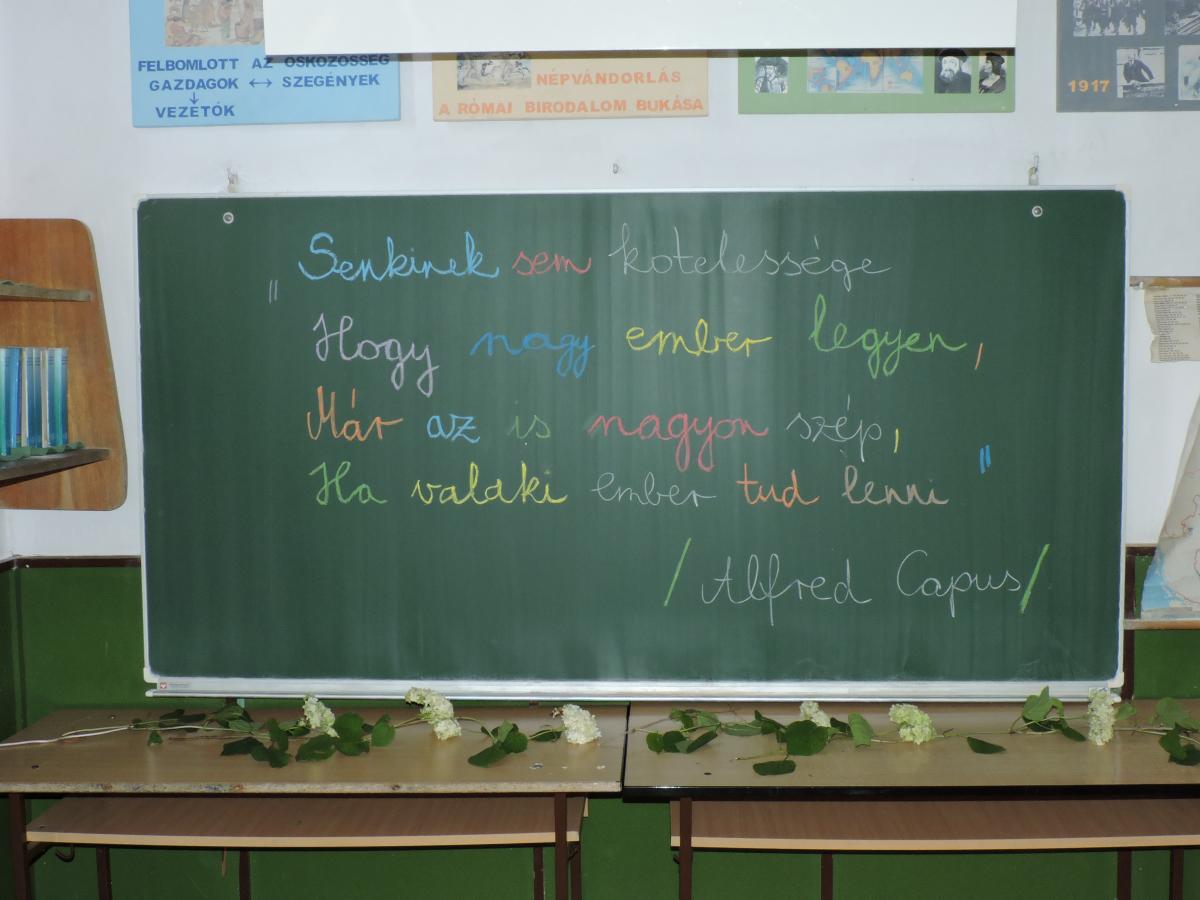 FELBOMLOTT AZ ŐSKÖZÖSSÉG
GAZDAGOK ↔ SZEGÉNYEK
↓
VEZETŐK
NÉPVÁNDORLÁS
A RÓMAI BIRODALOM BUKÁSA
1917
„ Senkinek sem kotelessége
Hogy nagy ember legyen,
Már az is nagyon szép,
Ha valaki ember tud lenni "
/ Alfred Capus /